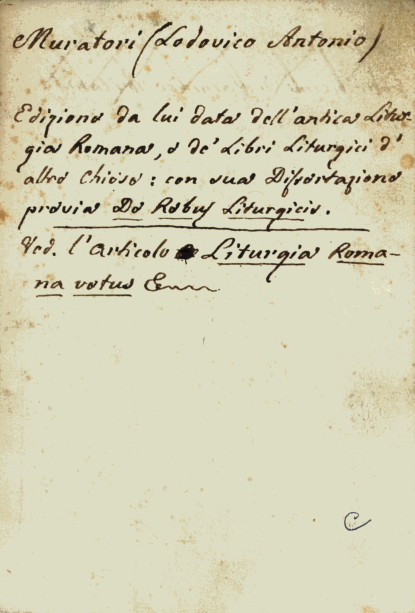 Muratori (Lodovico Antonio)
Edizione da lui data dell'antica Litur-
gia Romana, e de' Libri Liturgici d'
altre Chiese: con sua Dissertazione
previa De Rebus Liturgicis.
Ved. l'Articolo Liturgia Roma-
na vetus &c.
C